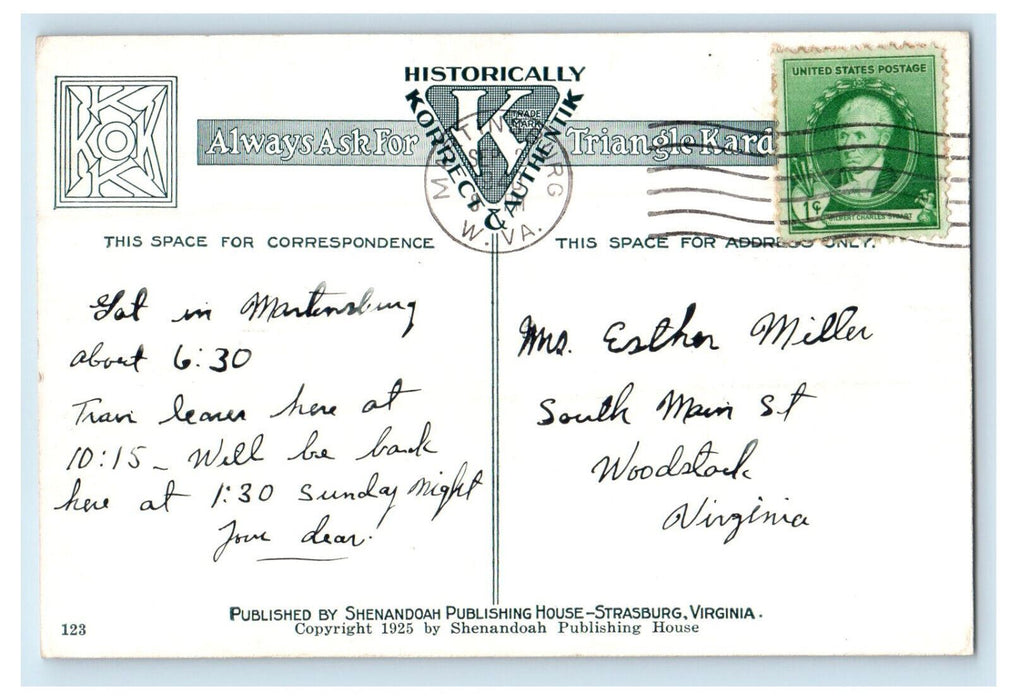 HISTORICALLY
KORRECT & AUTHENTIK
K
TRADE MARK
KOK
Always Ask For Triangle Kard
UNITED STATES POSTAGE
1¢
GILBERT CHARLES STUART
W. VA.
THIS SPACE FOR CORRESPONDENCE
THIS SPACE FOR ADDRESS ONLY.
Got in Martinsburg
about 6:30
Train leaves here at
10:15 - Will be back
here at 1:30 Sunday Night
Love dear.
Mrs. Esther Miller
South Main St
Woodstock
Virginia
PUBLISHED BY SHENANDOAH PUBLISHING HOUSE-STRASBURG, VIRGINIA.
123
Copyright 1925 by Shenandoah Publishing House